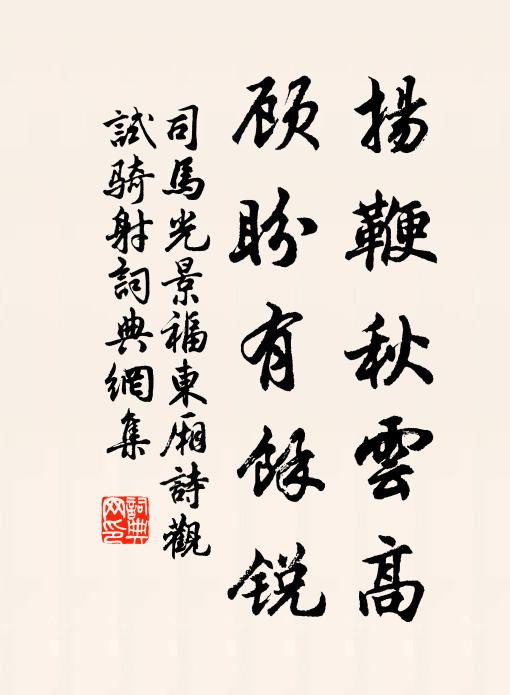 揚鞭秋雲高
顧盼有餘銳
司馬光景福東廂詩觀
試騎射詞典網集
詞典
网印